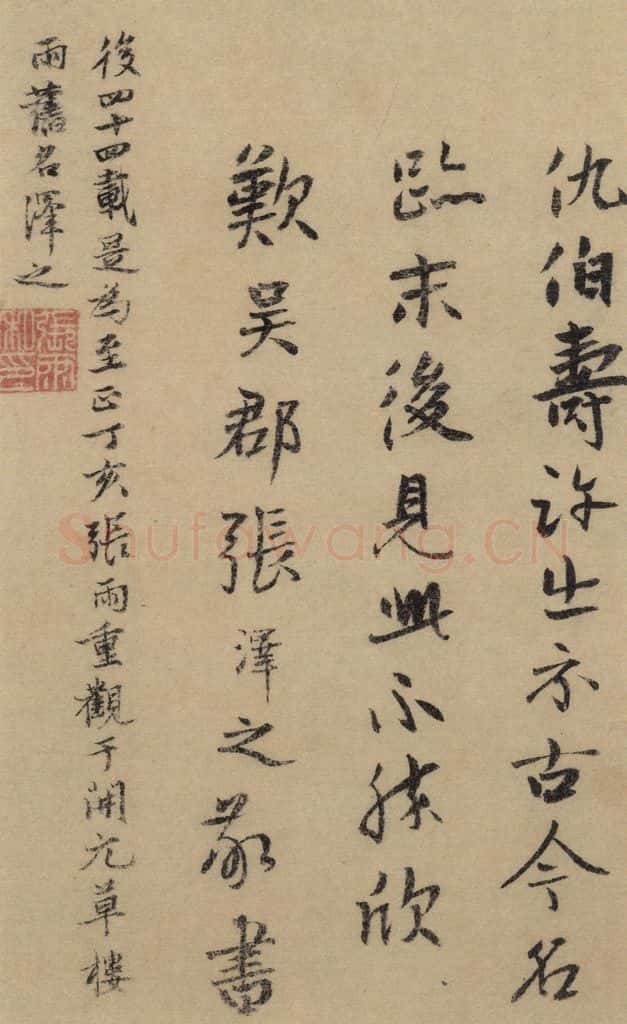 仇伯壽許出示古今名
跡末後見此不勝欣
歎吴郡張澤之敬書
後四十四載是為至正丁亥張雨重觀于開元草樓
雨舊名澤之
張雨私印
Shufawang.CN